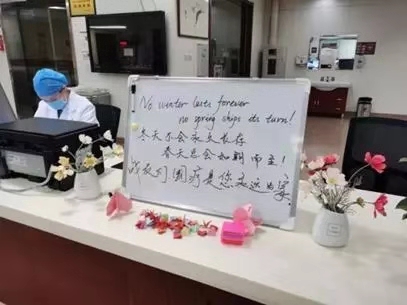 No winter lasts forever
no spring skips its turn!
冬天不会永久长存
春天总会如期而至!
战疫
是您永远的家